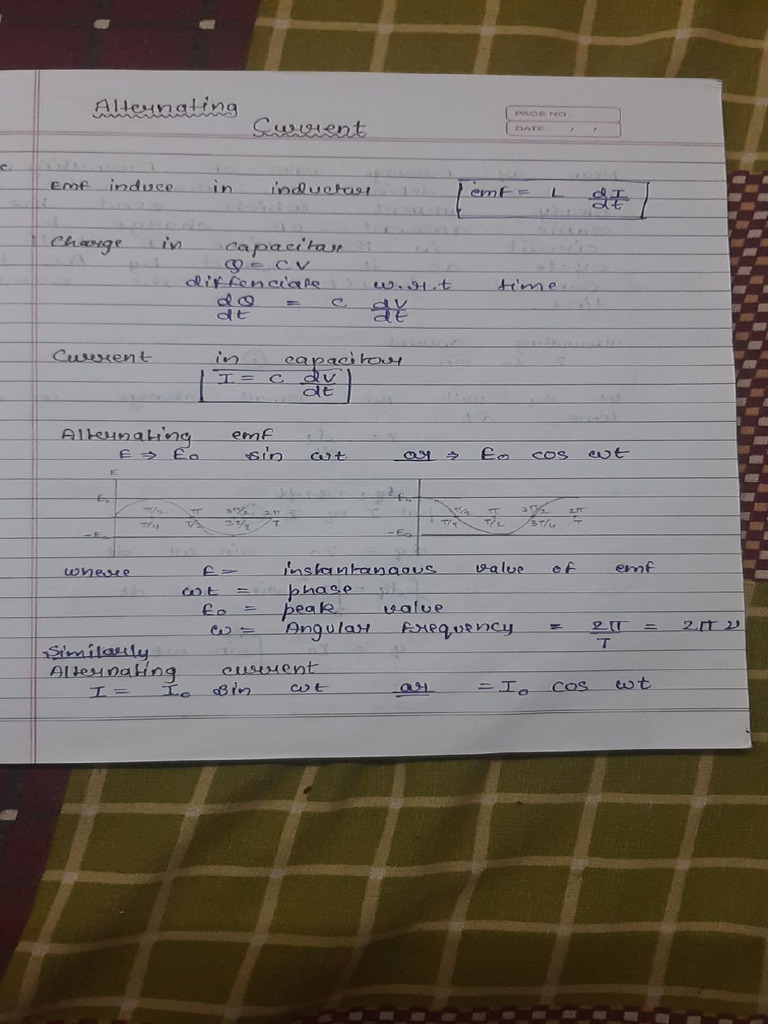 Alternating
Current
PAGE NO
DATE / /
Emf induce in inductor emf = L dI/dt
Charge in capacitor
Q = CV
diffenciate w.r.t time
dQ/dt = C dV/dt
Current in capacitor
I = C dV/dt
Alternating emf
E ⇒ E₀ sin ωt or ⇒ E₀ cos ωt
E
E₀ π/2 π 3π/2 2π
π/4 T/2 3T/4 T
-E₀
E₀ π/2 π 3π/2 2π
T/4 T/2 3T/4 T
-E₀
where E = instantanaous value of emf
ωt = phase
E₀ = peak value
ω = Angular frequency = 2π/T = 2πν
Similarly
Alternating current
I = I₀ sin ωt or = I₀ cos ωt